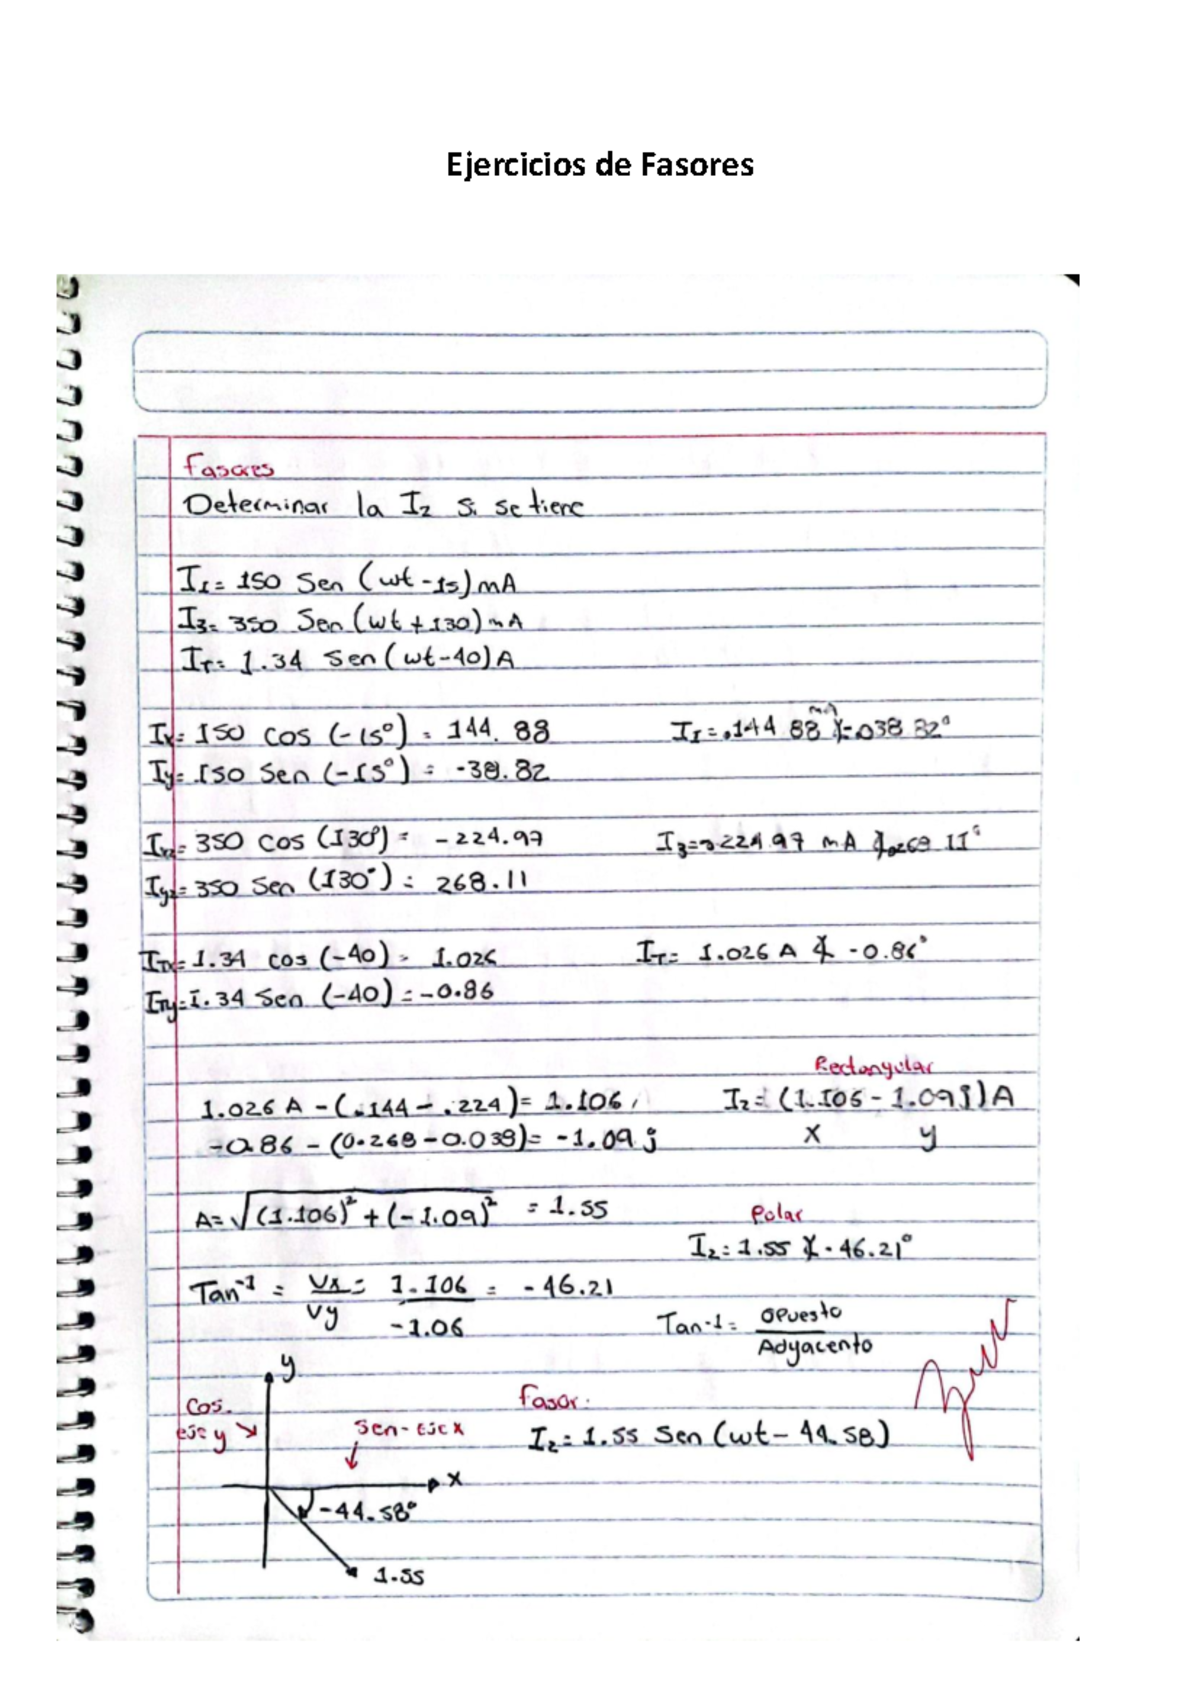 Ejercicios de Fasores
Fasores
Determinar la I2 si se tiene
I1= 150 Sen (wt-15)mA
I3= 350 Sen (wt+130)mA
IT= 1.34 Sen (wt-40)A
Ix= 150 cos (-15°) = 144.88
I1=.144 88 mA ∡-.038 82°
Iy= 150 Sen (-15°) = -38.82
Ix2= 350 cos (130°) = -224.97
I3=-.224.97 mA ∡.0268 11°
Iy2= 350 Sen (130°) = 268.11
ITx= 1.34 cos (-40) = 1.026
IT= 1.026 A ∡ -0.86°
ITy= 1.34 Sen (-40) = -0.86
Rectangular
1.026 A -(.144 - .224)= 1.106
I2= (1.106 - 1.09j)A
-0.86 - (0.268-0.038)= -1.09 j
x y
A= √(1.106)² + (-1.09)² = 1.55
Polar
I2= 1.55 ∡ -46.21°
Tan-1 = Vx/Vy = 1.106/-1.06 = -46.21
Tan-1= opuesto/Adyacento
y
Cos. eje y
Sen- eje x
Fasor.
I2= 1.55 Sen (wt- 44.58)
x
-44.58°
1.55